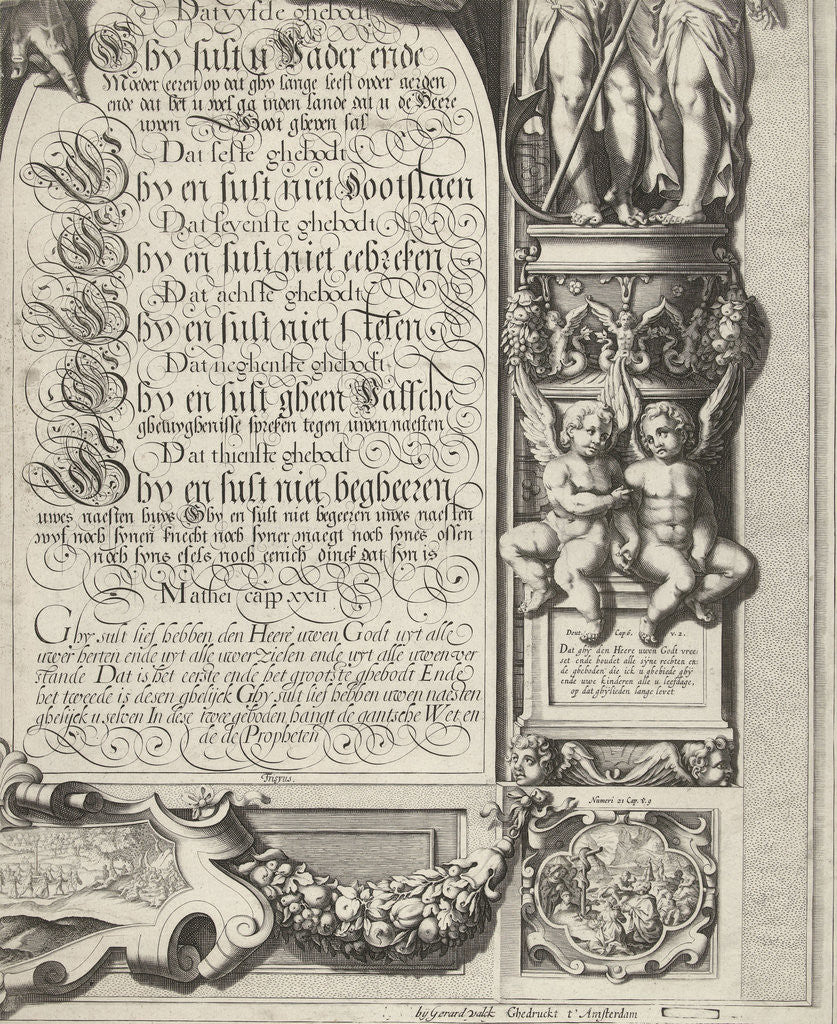 Dat vyfde ghebodt
Ghy sult u Vader ende
Moeder eeren op dat ghy lange leeft opder aerden
ende dat het u wel ga inden lande dat u de Heere
uwen Godt gheven sal
Dat seste ghebodt
Ghy en sult niet dootslaen
Dat sevenste ghebodt
Ghy en sult niet eebreken
Dat achste ghebodt
Ghy en sult niet stelen
Dat neghenste ghebodt
Ghy en sult gheen Valssche
ghetuyghenisse spreken tegen uwen naesten
Dat thienste ghebodt
Ghy en sult niet begheeren
uwes naesten huys Ghy en sult niet begeeren uwes naesten
wyf noch synen knecht noch syner maegt noch synes ossen
noch syns esels noch eenich dinck dat syn is
Mathei capp. xxii
Ghy sult lief hebben den Heere uwen Godt uyt alle
uwer herten ende uyt alle uwer zielen ende uyt alle uwen ver
stande Dat is het eerste ende het grootste ghebodt Ende
het tweede is desen ghelijck Ghy sult lief hebben uwen naesten
ghelijck u selven In dese twee geboden hangt de gantsche Wet en
de de Propheten
Frisius.
Deut. Cap 6. v. 2.
Dat ghy den Heere uwen Godt vree
set ende houdet alle syne rechten en
de gheboden die ick u ghebiede ghy
ende uwe kinderen alle u leefdage,
op dat ghylieden lange levet
Numeri 21 Cap. v. 9
by Gerard Valck Ghedruckt t'Amsterdam